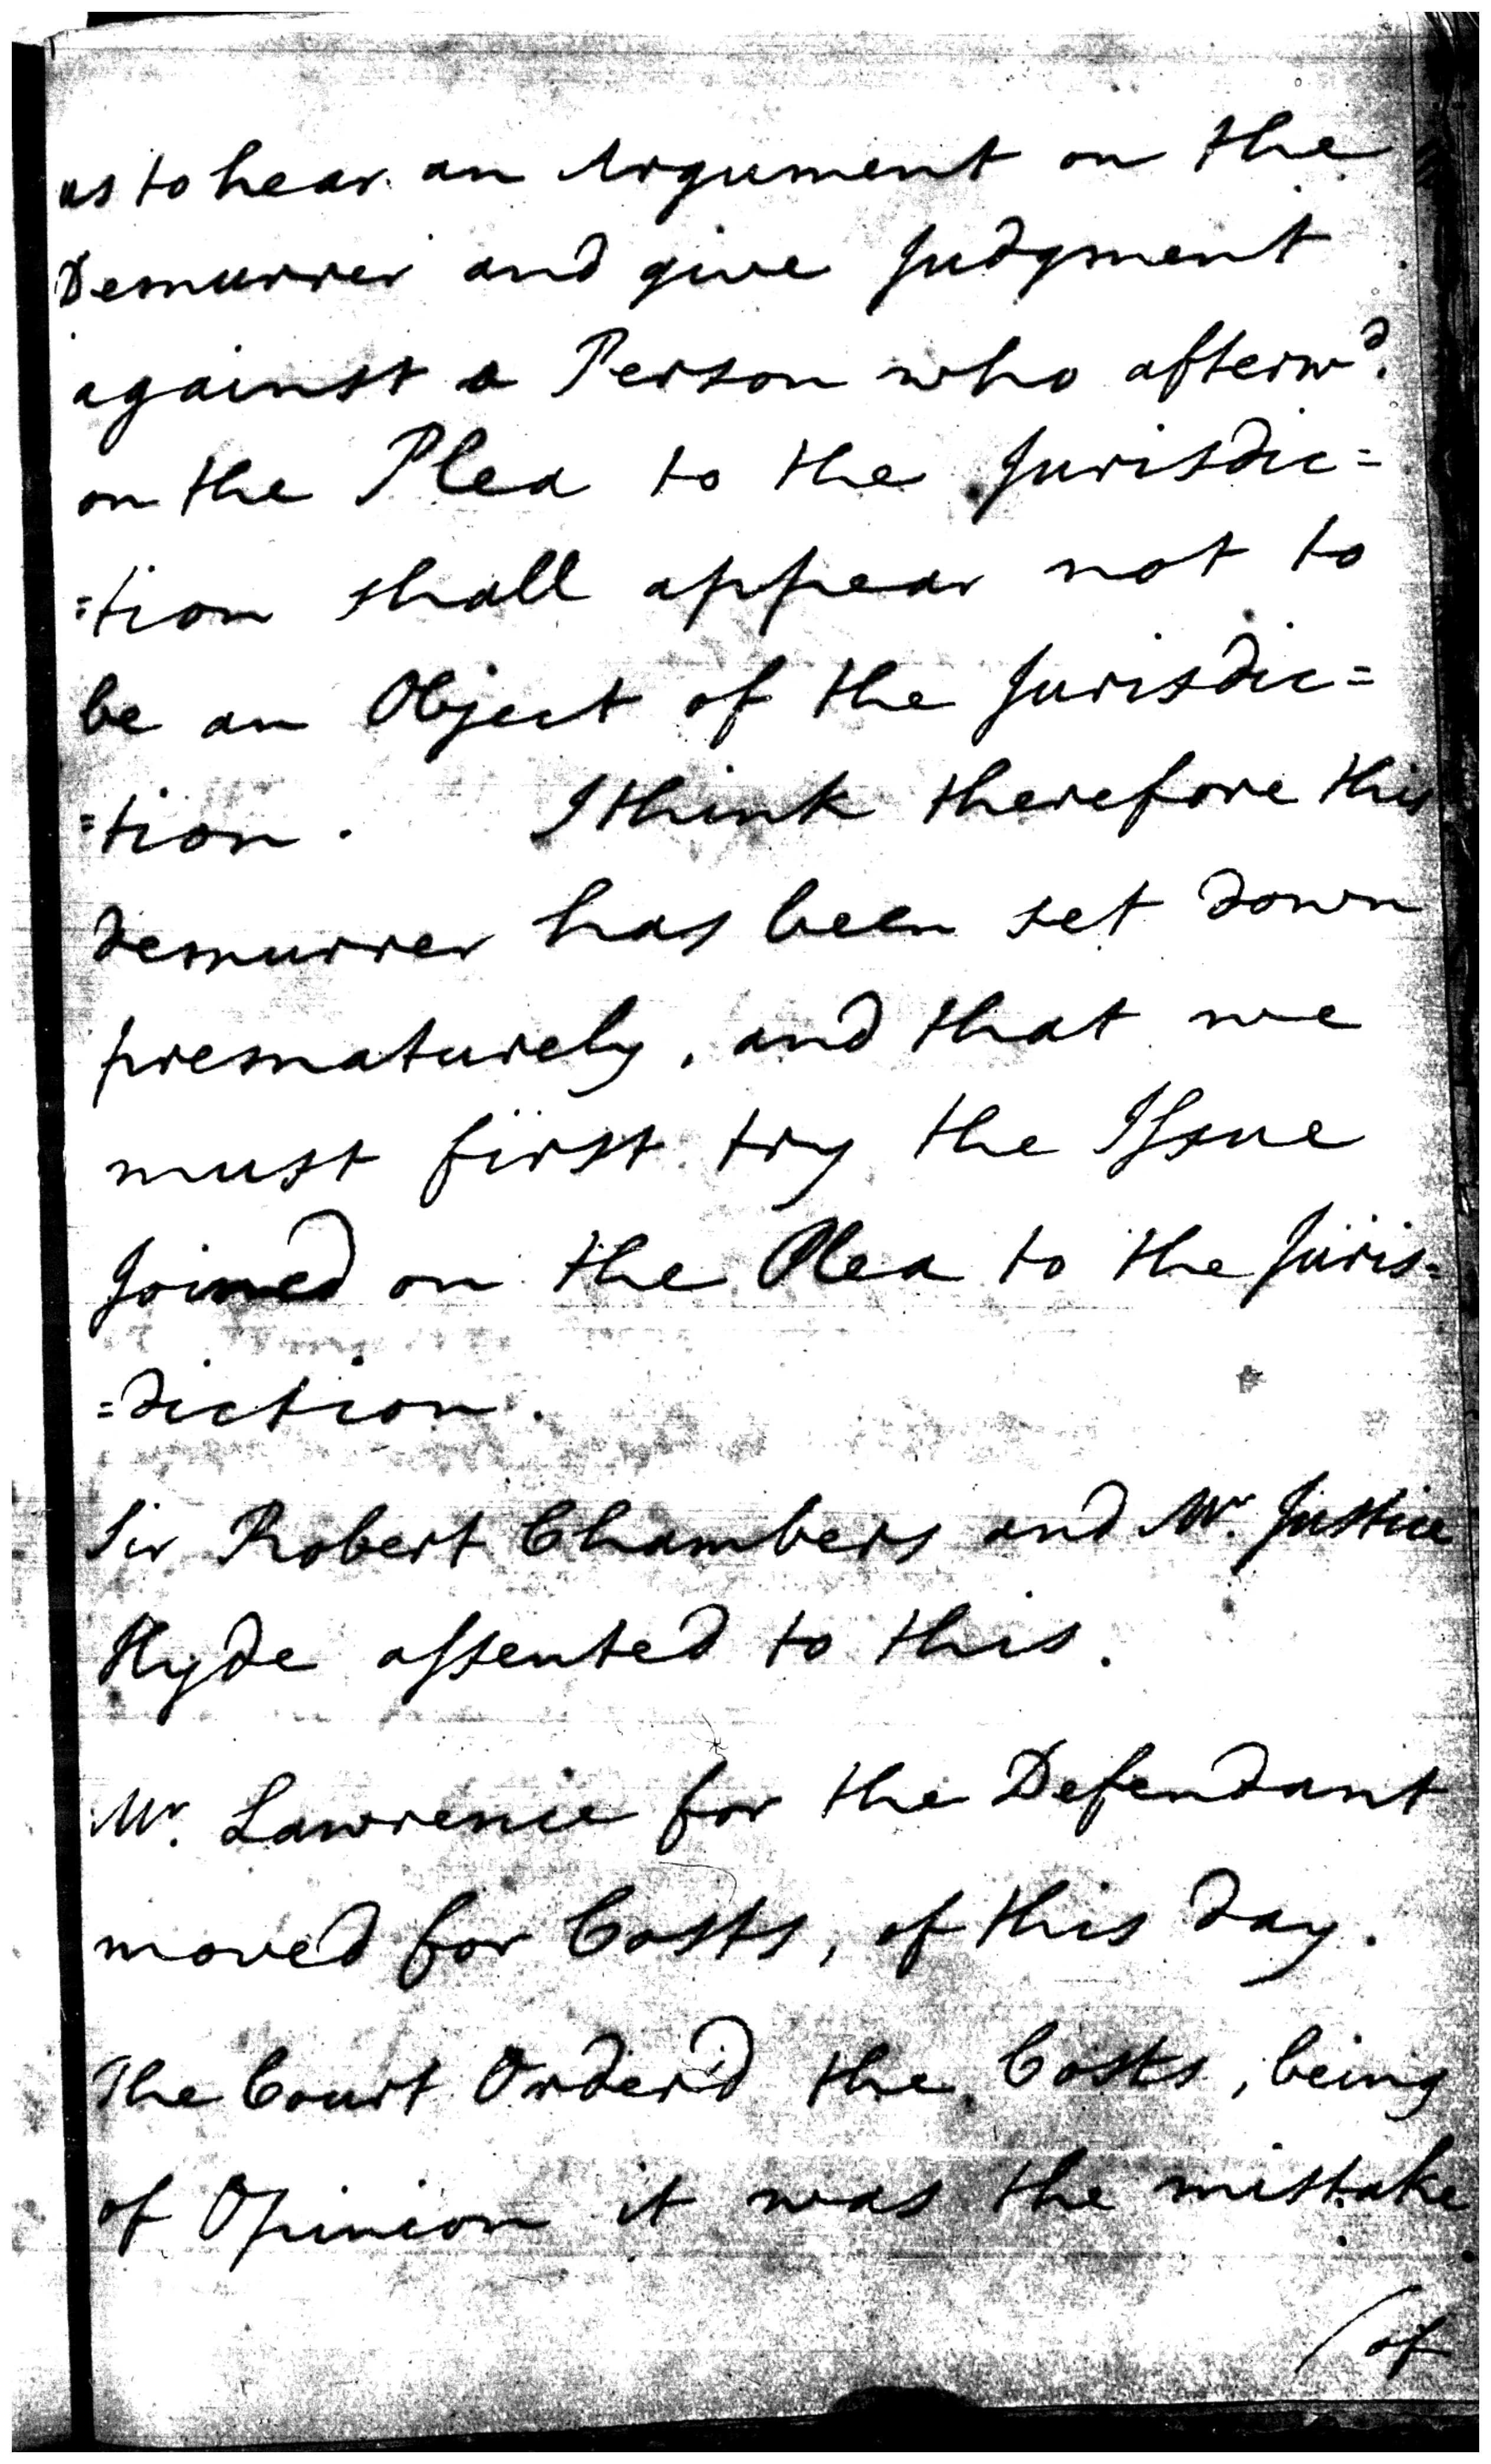 us to hear an Argument on the
Demurrer and give Judgment
against a Person who afterwd.
on the Plea to the Jurisdic=
=tion shall appear not to
be an Object of the Jurisdic=
=tion. I think therefore this
demurrer has been set down
prematurely, and that we
must first try the Issue
Joined on the Plea to the Juris=
=diction.
Sir Robert Chambers and Mr. Justice
Hyde assented to this.
Mr. Lawrence for the Defendant
moved for Costs, of this day.
The Court Order'd the Costs, being
of Opinion it was the mistake
(of